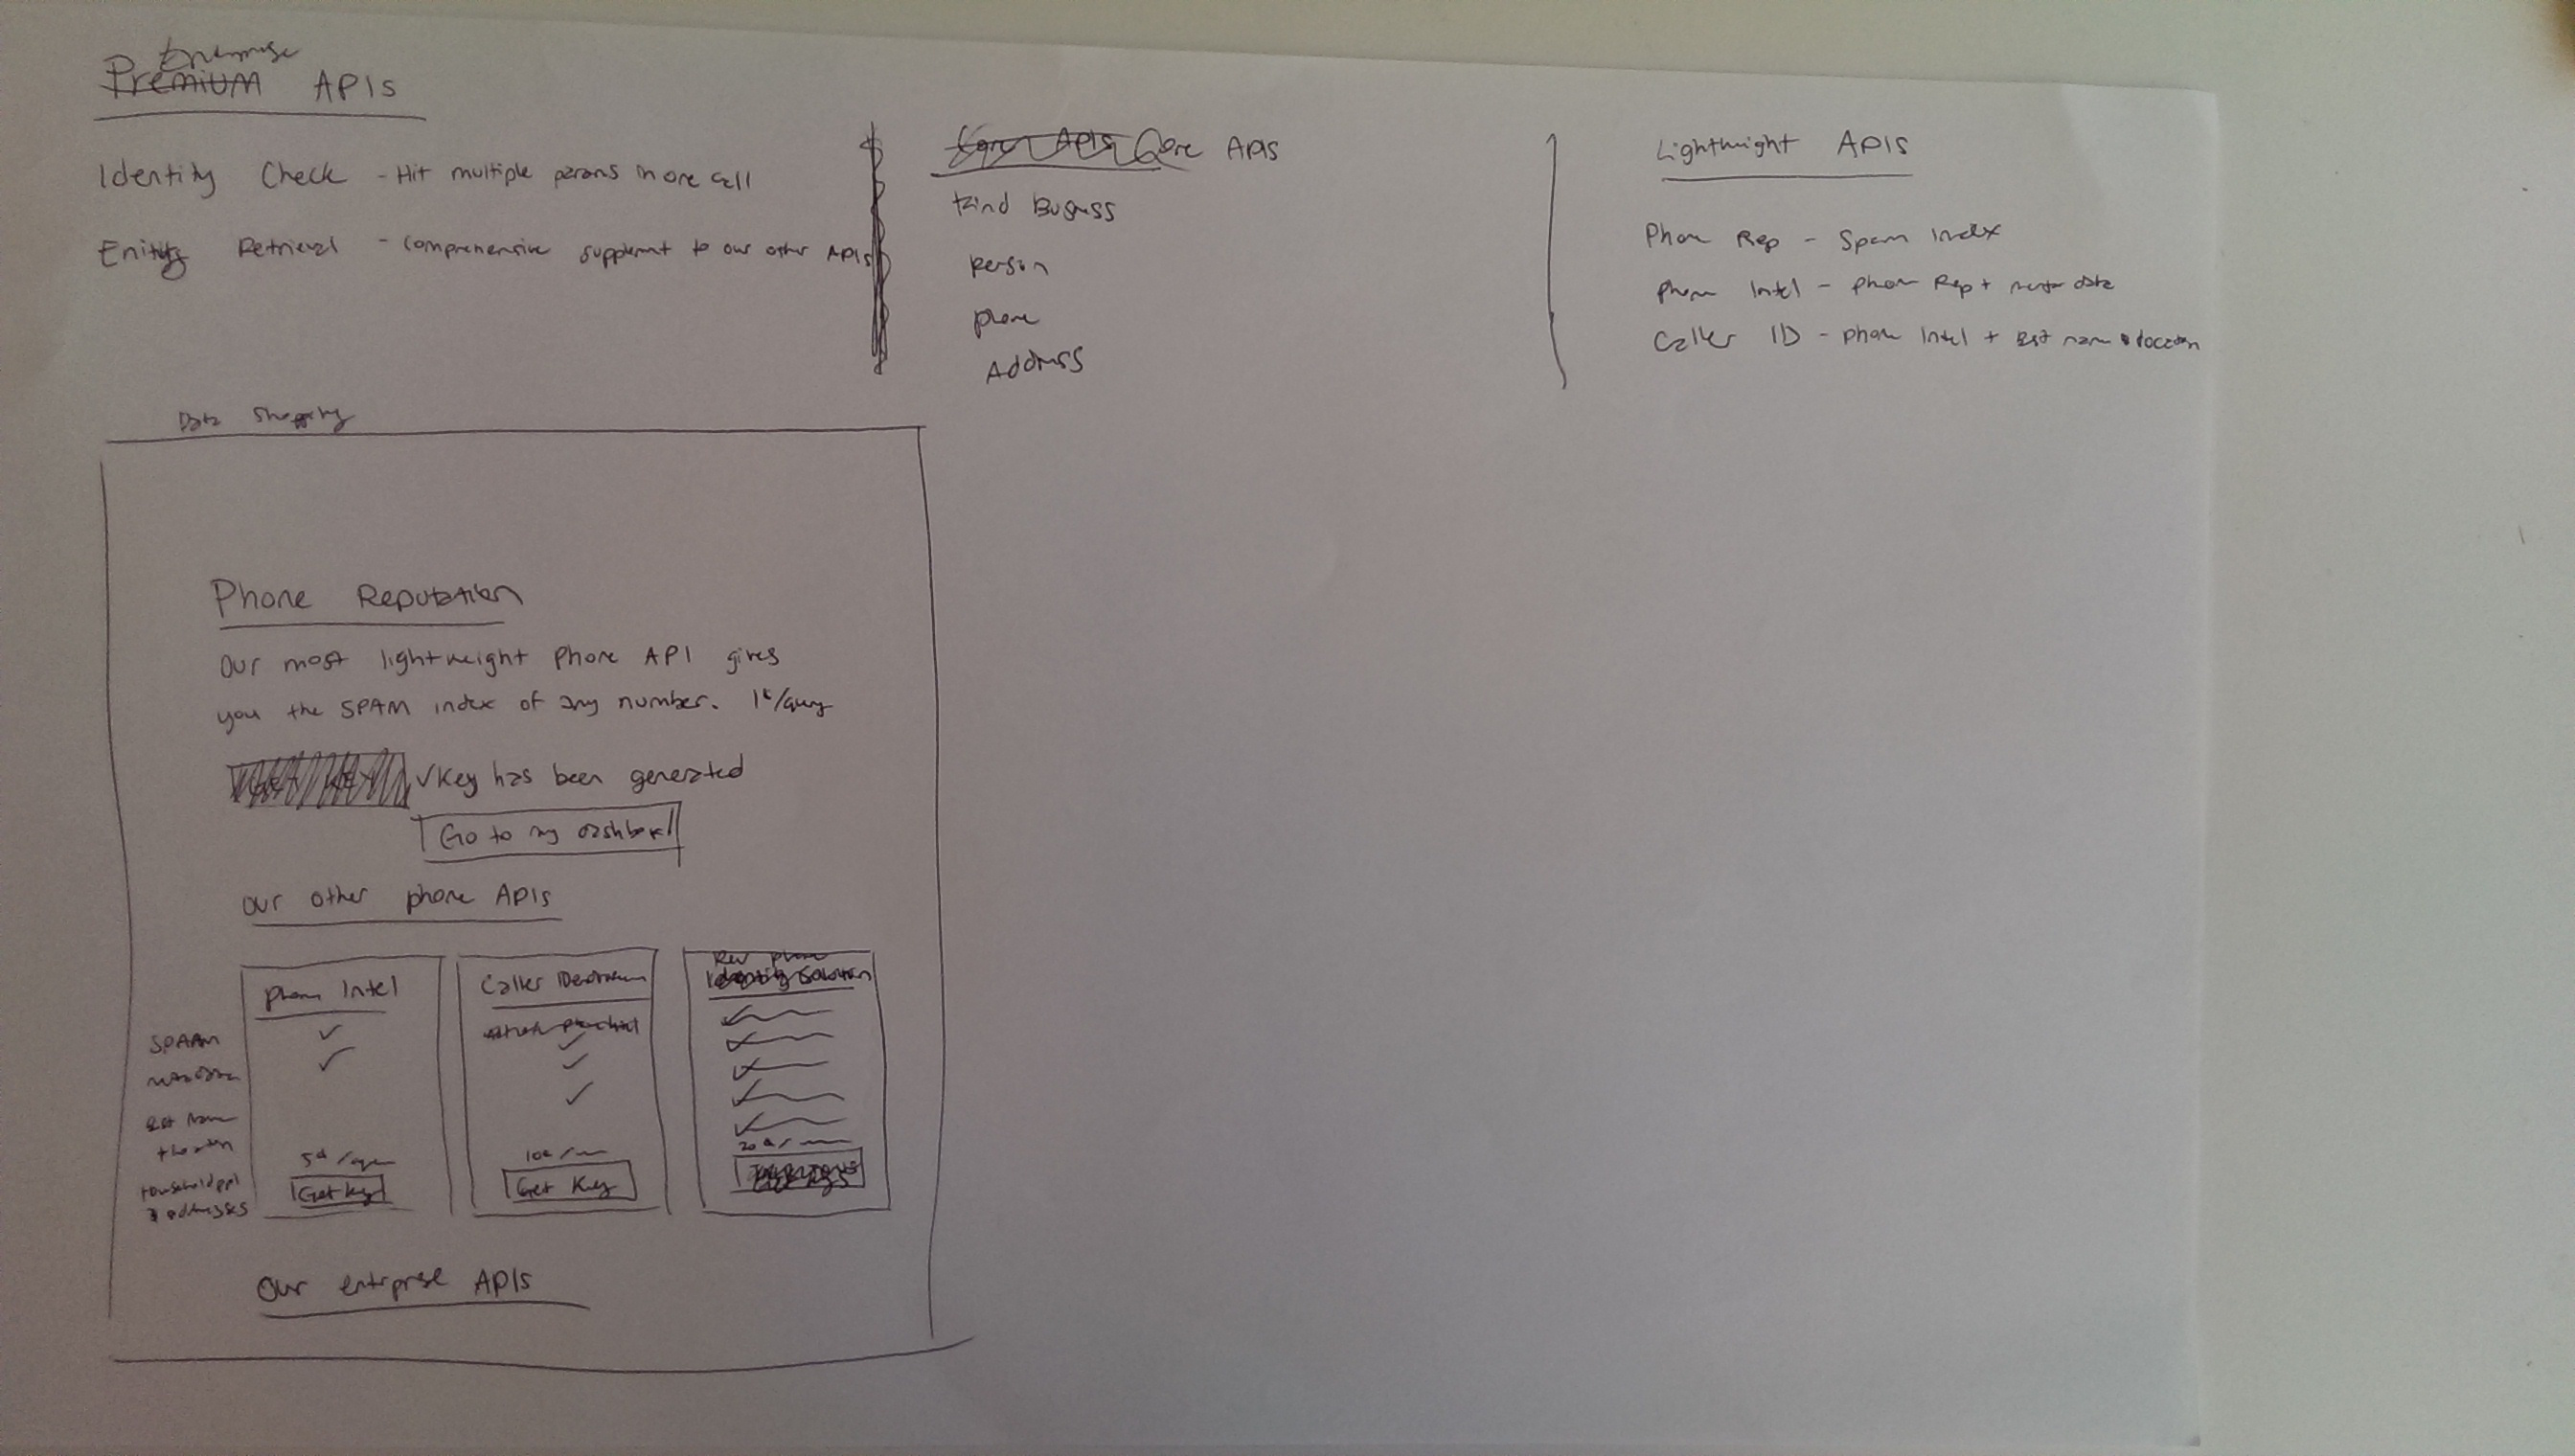 Enterprise
Premium APIs
Identity Check - Hit multiple params in one call
Enitity Retrieval - Comprehensive supplement to our other APIs
Core APIs Core APIs
Find Business
Person
phone
Address
Lightweight APIs
Phone Rep - Spam Index
Phone Intel - Phone Rep + meta data
Caller ID - Phone Intel + Best name & location
Data Shopping
Phone Reputation
Our most lightweight Phone API gives
you the SPAM index of any number. 1¢/query
Get Key ✓Key has been generated
Go to my dashboard
Our other phone APIs
Phone Intel
Caller
Rev phone
Identity Solution
✓
✓
✓
✓
✓
✓
✓
✓
✓
✓
SPAM
Metadata
Best Name
+ location
Household ppl
& addresses
5¢ /
10¢ /
20¢ /
Get key
Get Key
Our enterprise APIs